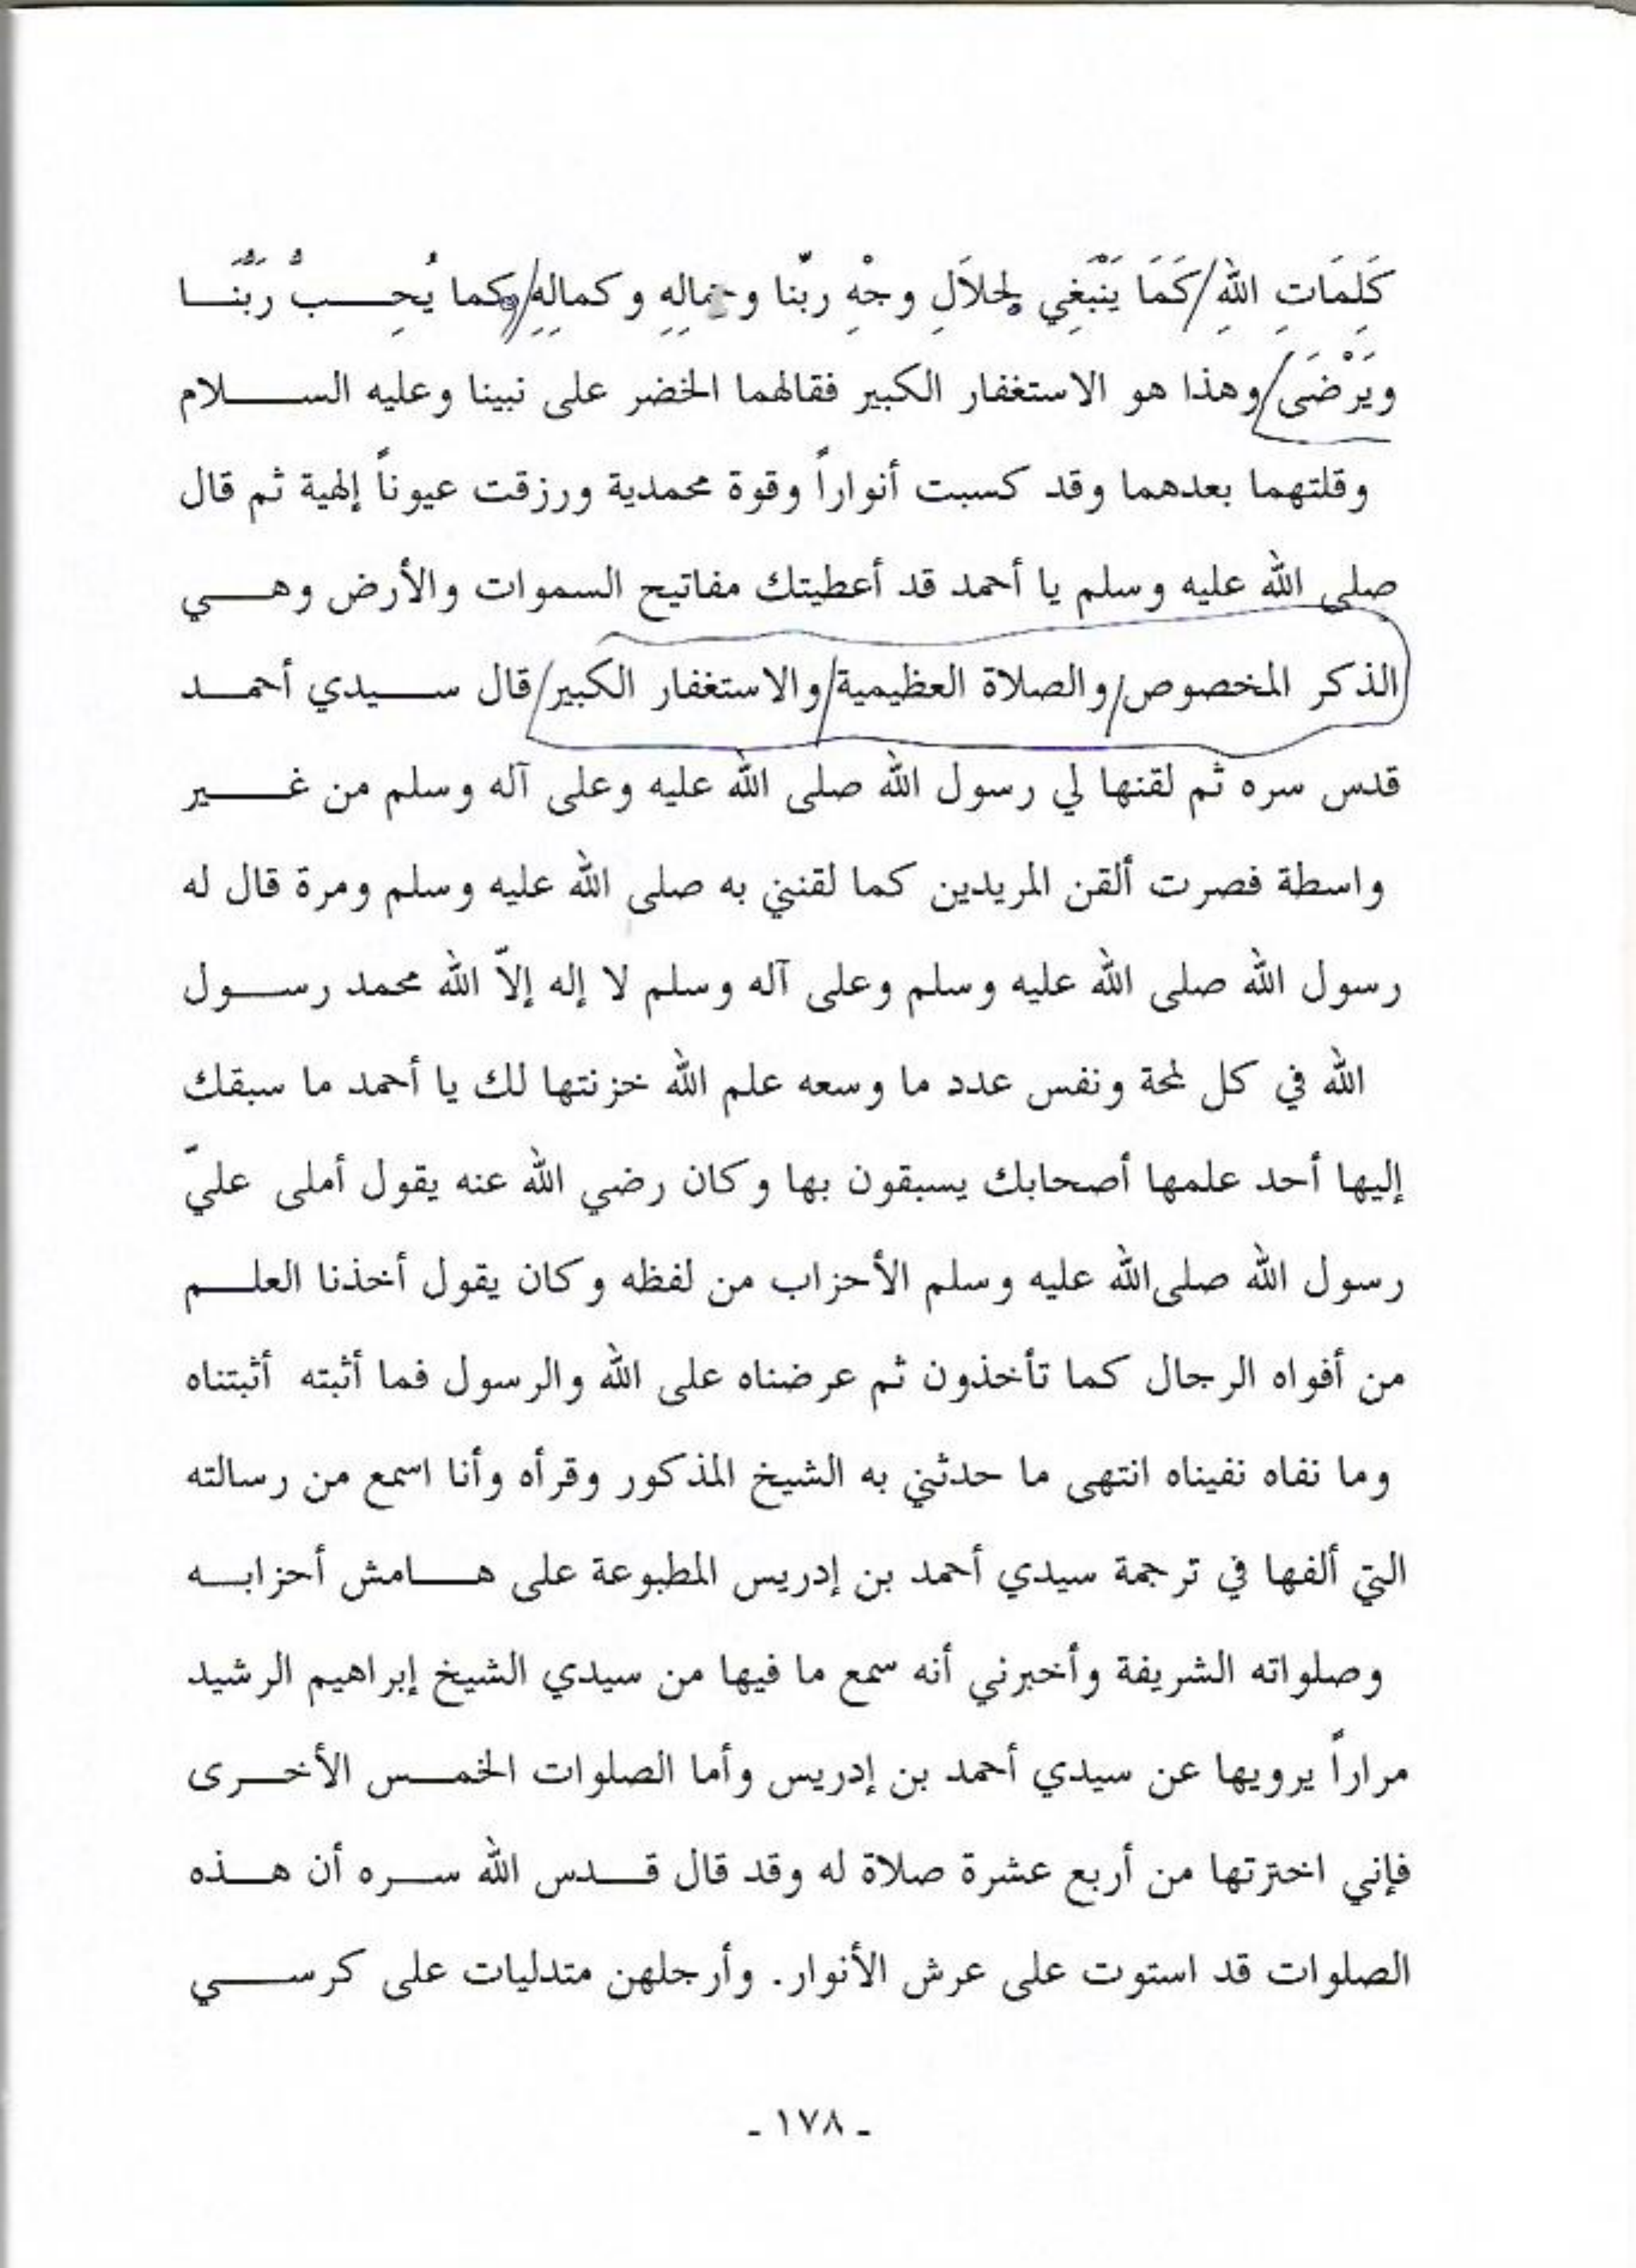 كَلِمَاتِ اللهِ/كَمَا يَنْبَغِي لِجَلاَلِ وجْهِ ربّنا وجمالِهِ وكمالِهِ/وكما يُحِـــبُّ رَبُّنَـــا
ويَرْضَى/وهذا هو الاستغفار الكبير فقالهما الخضر على نبينا وعليه الســـلام
وقلتهما بعدهما وقد كسبت أنواراً وقوة محمدية ورزقت عيوناً إلهية ثم قال
صلى الله عليه وسلم يا أحمد قد أعطيتك مفاتيح السموات والأرض وهـــي
الذكر المخصوص/والصلاة العظيمية/والاستغفار الكبير/قال ســـيدي أحمـــد
قدس سره ثم لقنها لي رسول الله صلى الله عليه وعلى آله وسلم من غـــير
واسطة فصرت ألقن المريدين كما لقنني به صلى الله عليه وسلم ومرة قال له
رسول الله صلى الله عليه وسلم وعلى آله وسلم لا إله إلاّ الله محمد رســـول
الله في كل لمحة ونفس عدد ما وسعه علم الله خزنتها لك يا أحمد ما سبقك
إليها أحد علمها أصحابك يسبقون بها وكان رضي الله عنه يقول أملى عليّ
رسول الله صلى الله عليه وسلم الأحزاب من لفظه وكان يقول أخذنا العلـــم
من أفواه الرجال كما تأخذون ثم عرضناه على الله والرسول فما أثبته أثبتناه
وما نفاه نفيناه انتهى ما حدثني به الشيخ المذكور وقرأه وأنا اسمع من رسالته
التي ألفها في ترجمة سيدي أحمد بن إدريس المطبوعة على هـــامش أحزابـــه
وصلواته الشريفة وأخبرني أنه سمع ما فيها من سيدي الشيخ إبراهيم الرشيد
مراراً يرويها عن سيدي أحمد بن إدريس وأما الصلوات الخمـــس الأخـــرى
فإني اخترتها من أربع عشرة صلاة له وقد قال قـــدس الله ســـره أن هـــذه
الصلوات قد استوت على عرش الأنوار. وأرجلهن متدليات على كرســـي
ـ ١٧٨ ـ